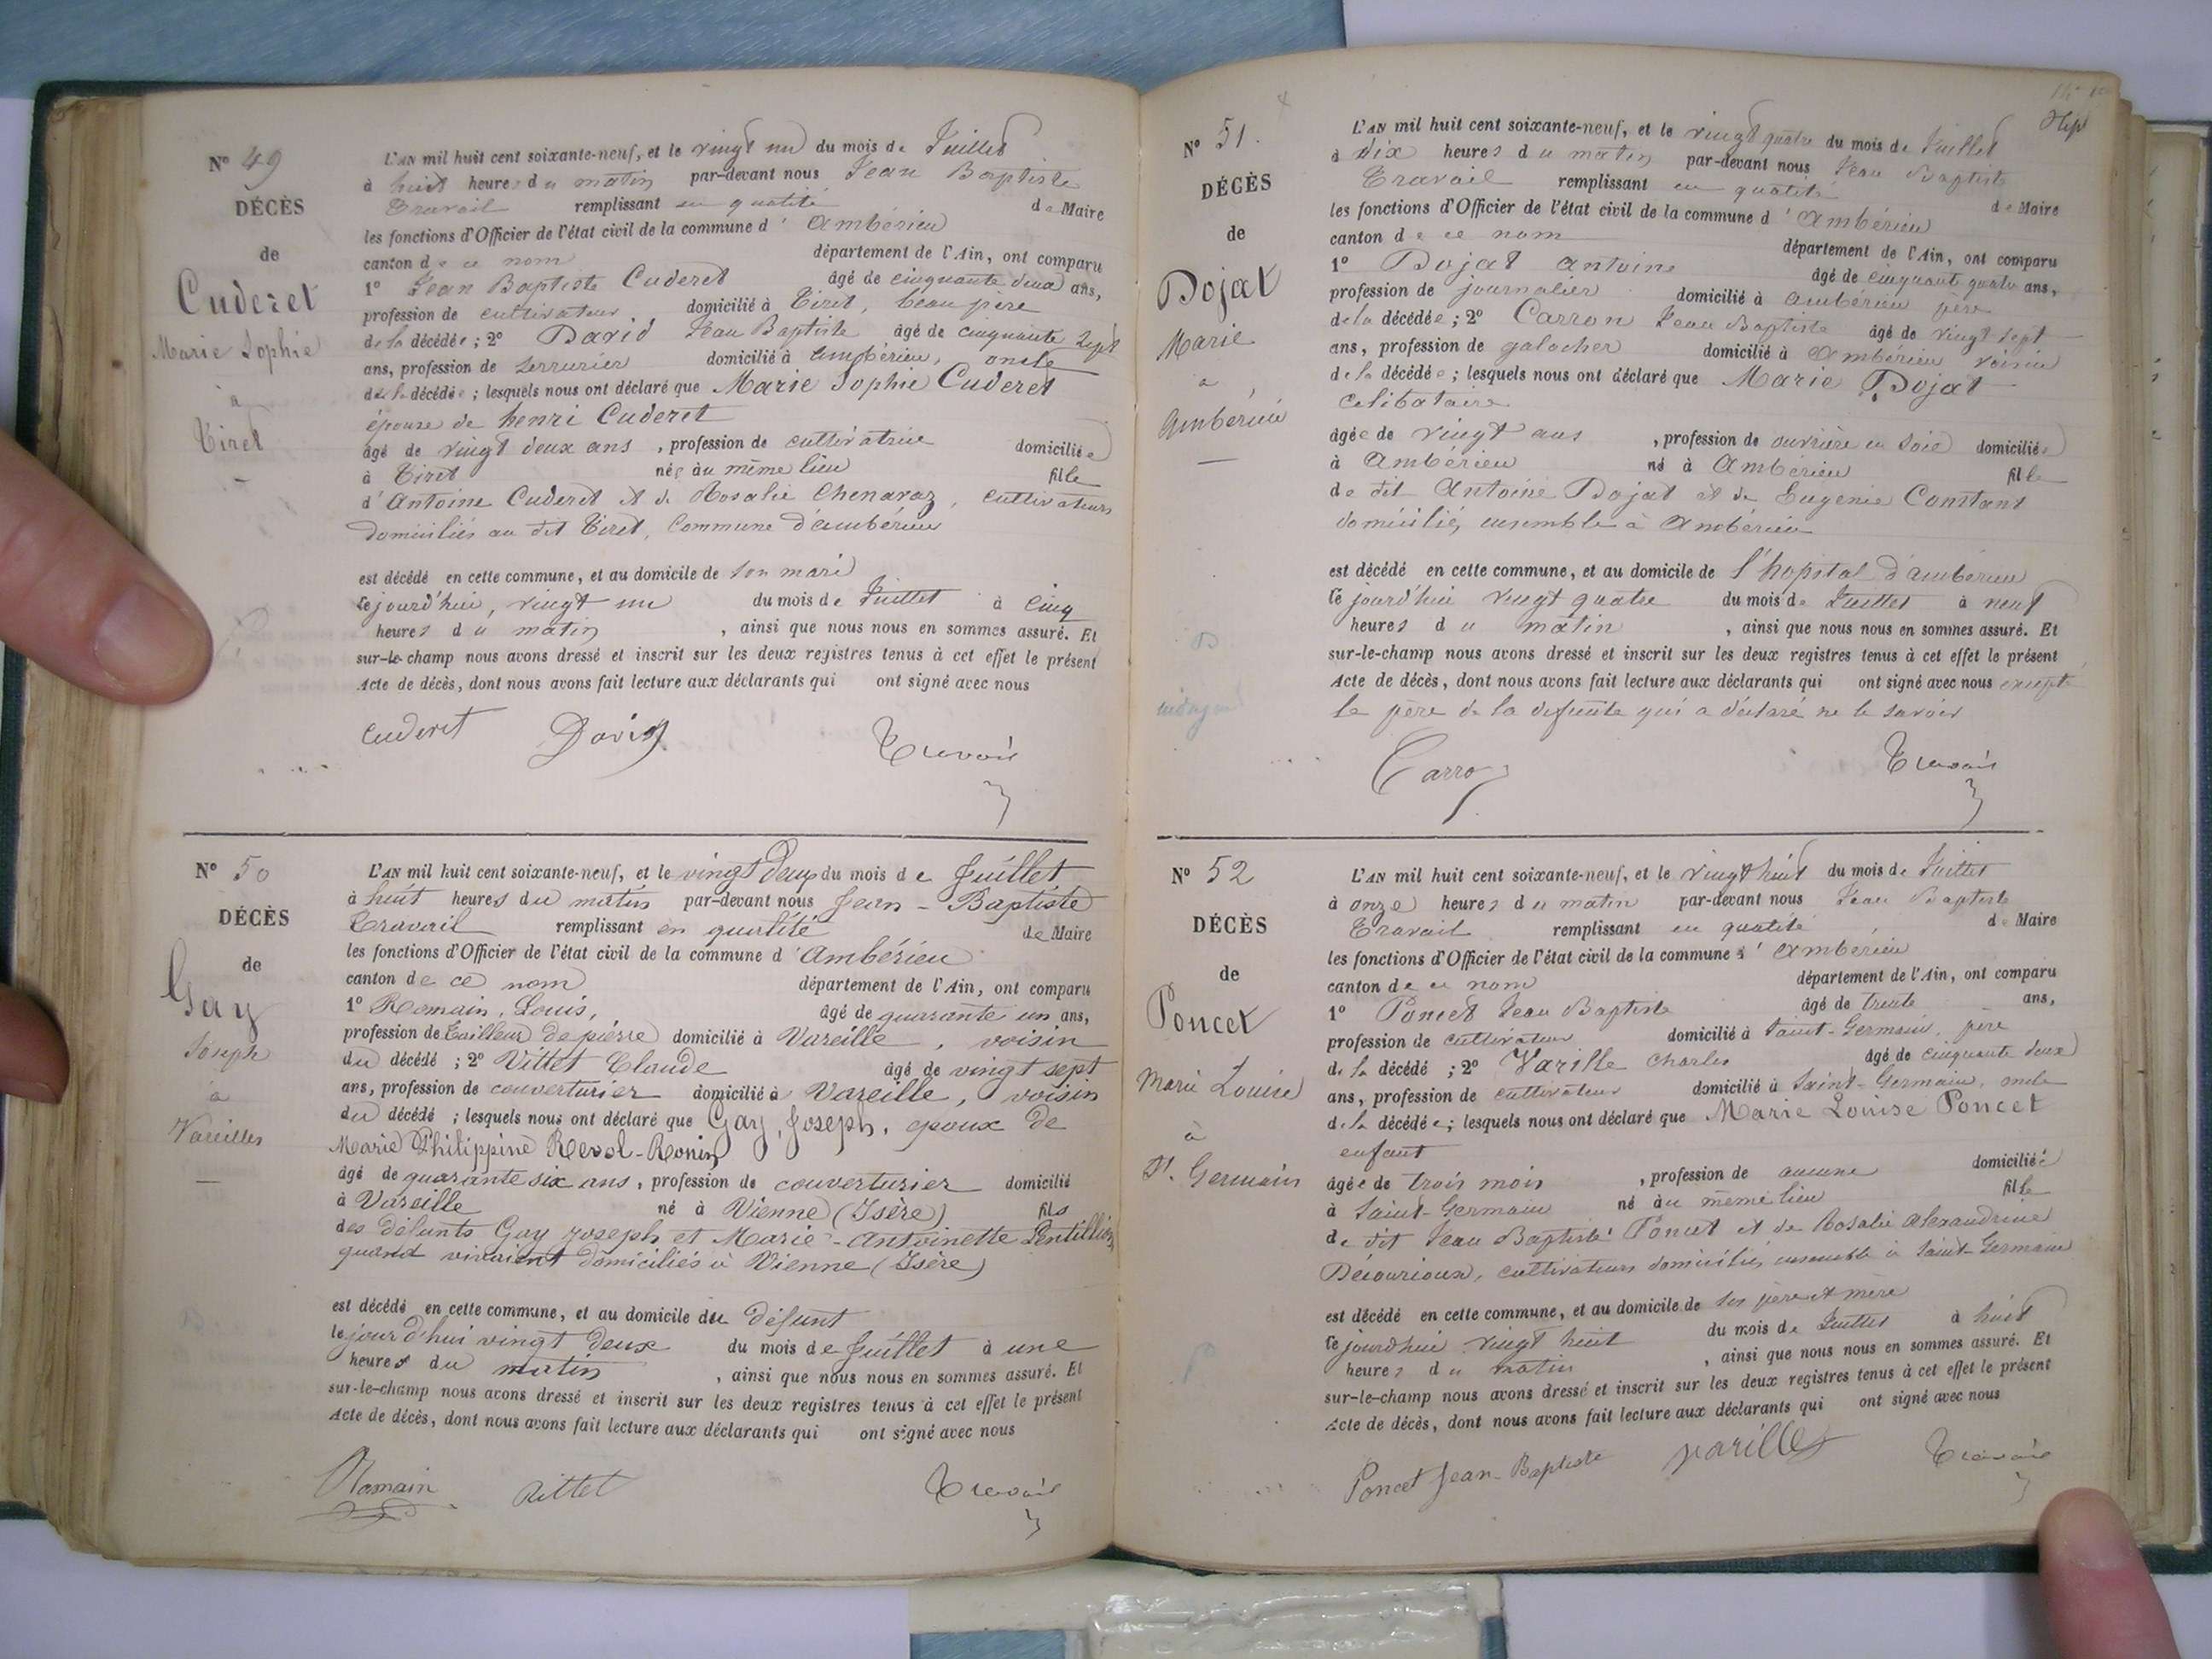 Nº 49
DÉCÈS
de
Cuderet
Marie Sophie
à
Tiret
L'AN mil huit cent soixante-neuf, et le vingt un du mois de Juillet
à huit heures du matin par-devant nous Jean Baptiste
Travail remplissant en qualité de Maire
les fonctions d'Officier de l'état civil de la commune d'Ambérieu
canton de ce nom département de l'Ain, ont comparu
1º Jean Baptiste Cuderet âgé de cinquante deux ans,
profession de cultivateur domicilié à Tiret, beau père
de la décédée ; 2º David Jean Baptiste âgé de cinquante sept
ans, profession de serrurier domicilié à Ambérieu, oncle
de la décédée ; lesquels nous ont déclaré que Marie Sophie Cuderet
épouse de henri Cuderet
âgé de vingt deux ans , profession de cultivatrice domiciliée
à Tiret née au même lieu fille
d'Antoine Cuderet et de Rosalie Chenavaz, cultivateurs
domiciliés au dit Tiret, Commune d'ambérieu
est décédé en cette commune, et au domicile de son mari
le jourd'hui, vingt un du mois de Juillet à cinq
heures du matin , ainsi que nous nous en sommes assuré. Et
sur-le-champ nous avons dressé et inscrit sur les deux registres tenus à cet effet le présent
Acte de décès, dont nous avons fait lecture aux déclarants qui ont signé avec nous
Cuderet David Travail
Nº 50
DÉCÈS
de
Gay
Joseph
à
Vareilles
L'AN mil huit cent soixante-neuf, et le vingt Deux du mois de Juillet
à huit heures du matin par-devant nous Jean-Baptiste
Travail remplissant en qualité de Maire
les fonctions d'Officier de l'état civil de la commune d'Ambérieu
canton de ce nom département de l'Ain, ont comparu
1º Romain, Louis, âgé de quarante un ans,
profession de Tailleur de pierre domicilié à Vareille, voisin
du décédé ; 2º Vittet Claude âgé de vingt sept
ans, profession de couverturier domicilié à Vareille, voisin
du décédé ; lesquels nous ont déclaré que Gay, Joseph, époux de
Marie Philippine Revol-Ronin
âgé de quarante six ans, profession de couverturier domicilié
à Vareille né à Vienne (Isère) fils
des défunts Gay Joseph et Marie-Antoinette
quand vivaient domiciliés à Vienne (Isère)
est décédé en cette commune, et au domicile du défunt
le jourd'hui vingt deux du mois de Juillet à une
heures du matin , ainsi que nous nous en sommes assuré. Et
sur-le-champ nous avons dressé et inscrit sur les deux registres tenus à cet effet le présent
Acte de décès, dont nous avons fait lecture aux déclarants qui ont signé avec nous
Romain Vittet Travail
Nº 51.
DÉCÈS
de
Dojat
Marie
a
Ambérieu
L'AN mil huit cent soixante-neuf, et le vingt quatre du mois de Juillet
à dix heures du matin par-devant nous Jean Baptiste
Travail remplissant en qualité de Maire
les fonctions d'Officier de l'état civil de la commune d'Ambérieu
canton de ce nom département de l'Ain, ont comparu
1º Dojat Antoine âgé de cinquante quatre ans,
profession de journalier domicilié à Ambérieu père
de la décédée ; 2º Carron Jean Baptiste âgé de vingt sept
ans, profession de galocher domicilié à Ambérieu voisin
de la décédée ; lesquels nous ont déclaré que Marie Dojat
Celibataire
âgée de vingt ans , profession de ouvrière en soie domiciliée
à Ambérieu né à Ambérieu fille
de dit Antoine Dojat et de Eugenie Constant
domiciliés ensemble à Ambérieu
est décédé en cette commune, et au domicile de l'hopital d'ambérieu
le jourd'hui vingt quatre du mois de Juillet à neuf
heures du matin , ainsi que nous nous en sommes assuré. Et
sur-le-champ nous avons dressé et inscrit sur les deux registres tenus à cet effet le présent
Acte de décès, dont nous avons fait lecture aux déclarants qui ont signé avec nous excepté
le père de la defunte qui a déclaré ne le savoir
Carron Travail
Nº 52
DÉCÈS
de
Poncet
Marie Louise
à
St. Germain
L'AN mil huit cent soixante-neuf, et le vingt huit du mois de Juillet
à onze heures du matin par-devant nous Jean Baptiste
Travail remplissant en qualité de Maire
les fonctions d'Officier de l'état civil de la commune d'Ambérieu
canton de ce nom département de l'Ain, ont comparu
1º Poncet Jean Baptiste âgé de trente ans,
profession de cultivateur domicilié à Saint-Germain, père
de la décédé ; 2º Varille Charles âgé de cinquante deux
ans, profession de cultivateur domicilié à Saint-Germain, oncle
de la décédée ; lesquels nous ont déclaré que Marie Louise Poncet
enfant
âgée de trois mois , profession de aucune domiciliée
à Saint-Germain né au même lieu fille
de dit Jean Baptiste Poncet et de Rosalie Alexandrine
cultivateurs domiciliés ensemble à Saint-Germain
est décédé en cette commune, et au domicile de ses père et mère
le jourd'hui vingt huit du mois de Juillet à huit
heures du matin , ainsi que nous nous en sommes assuré. Et
sur-le-champ nous avons dressé et inscrit sur les deux registres tenus à cet effet le présent
Acte de décès, dont nous avons fait lecture aux déclarants qui ont signé avec nous
Poncet Jean-Baptiste Varille Travail